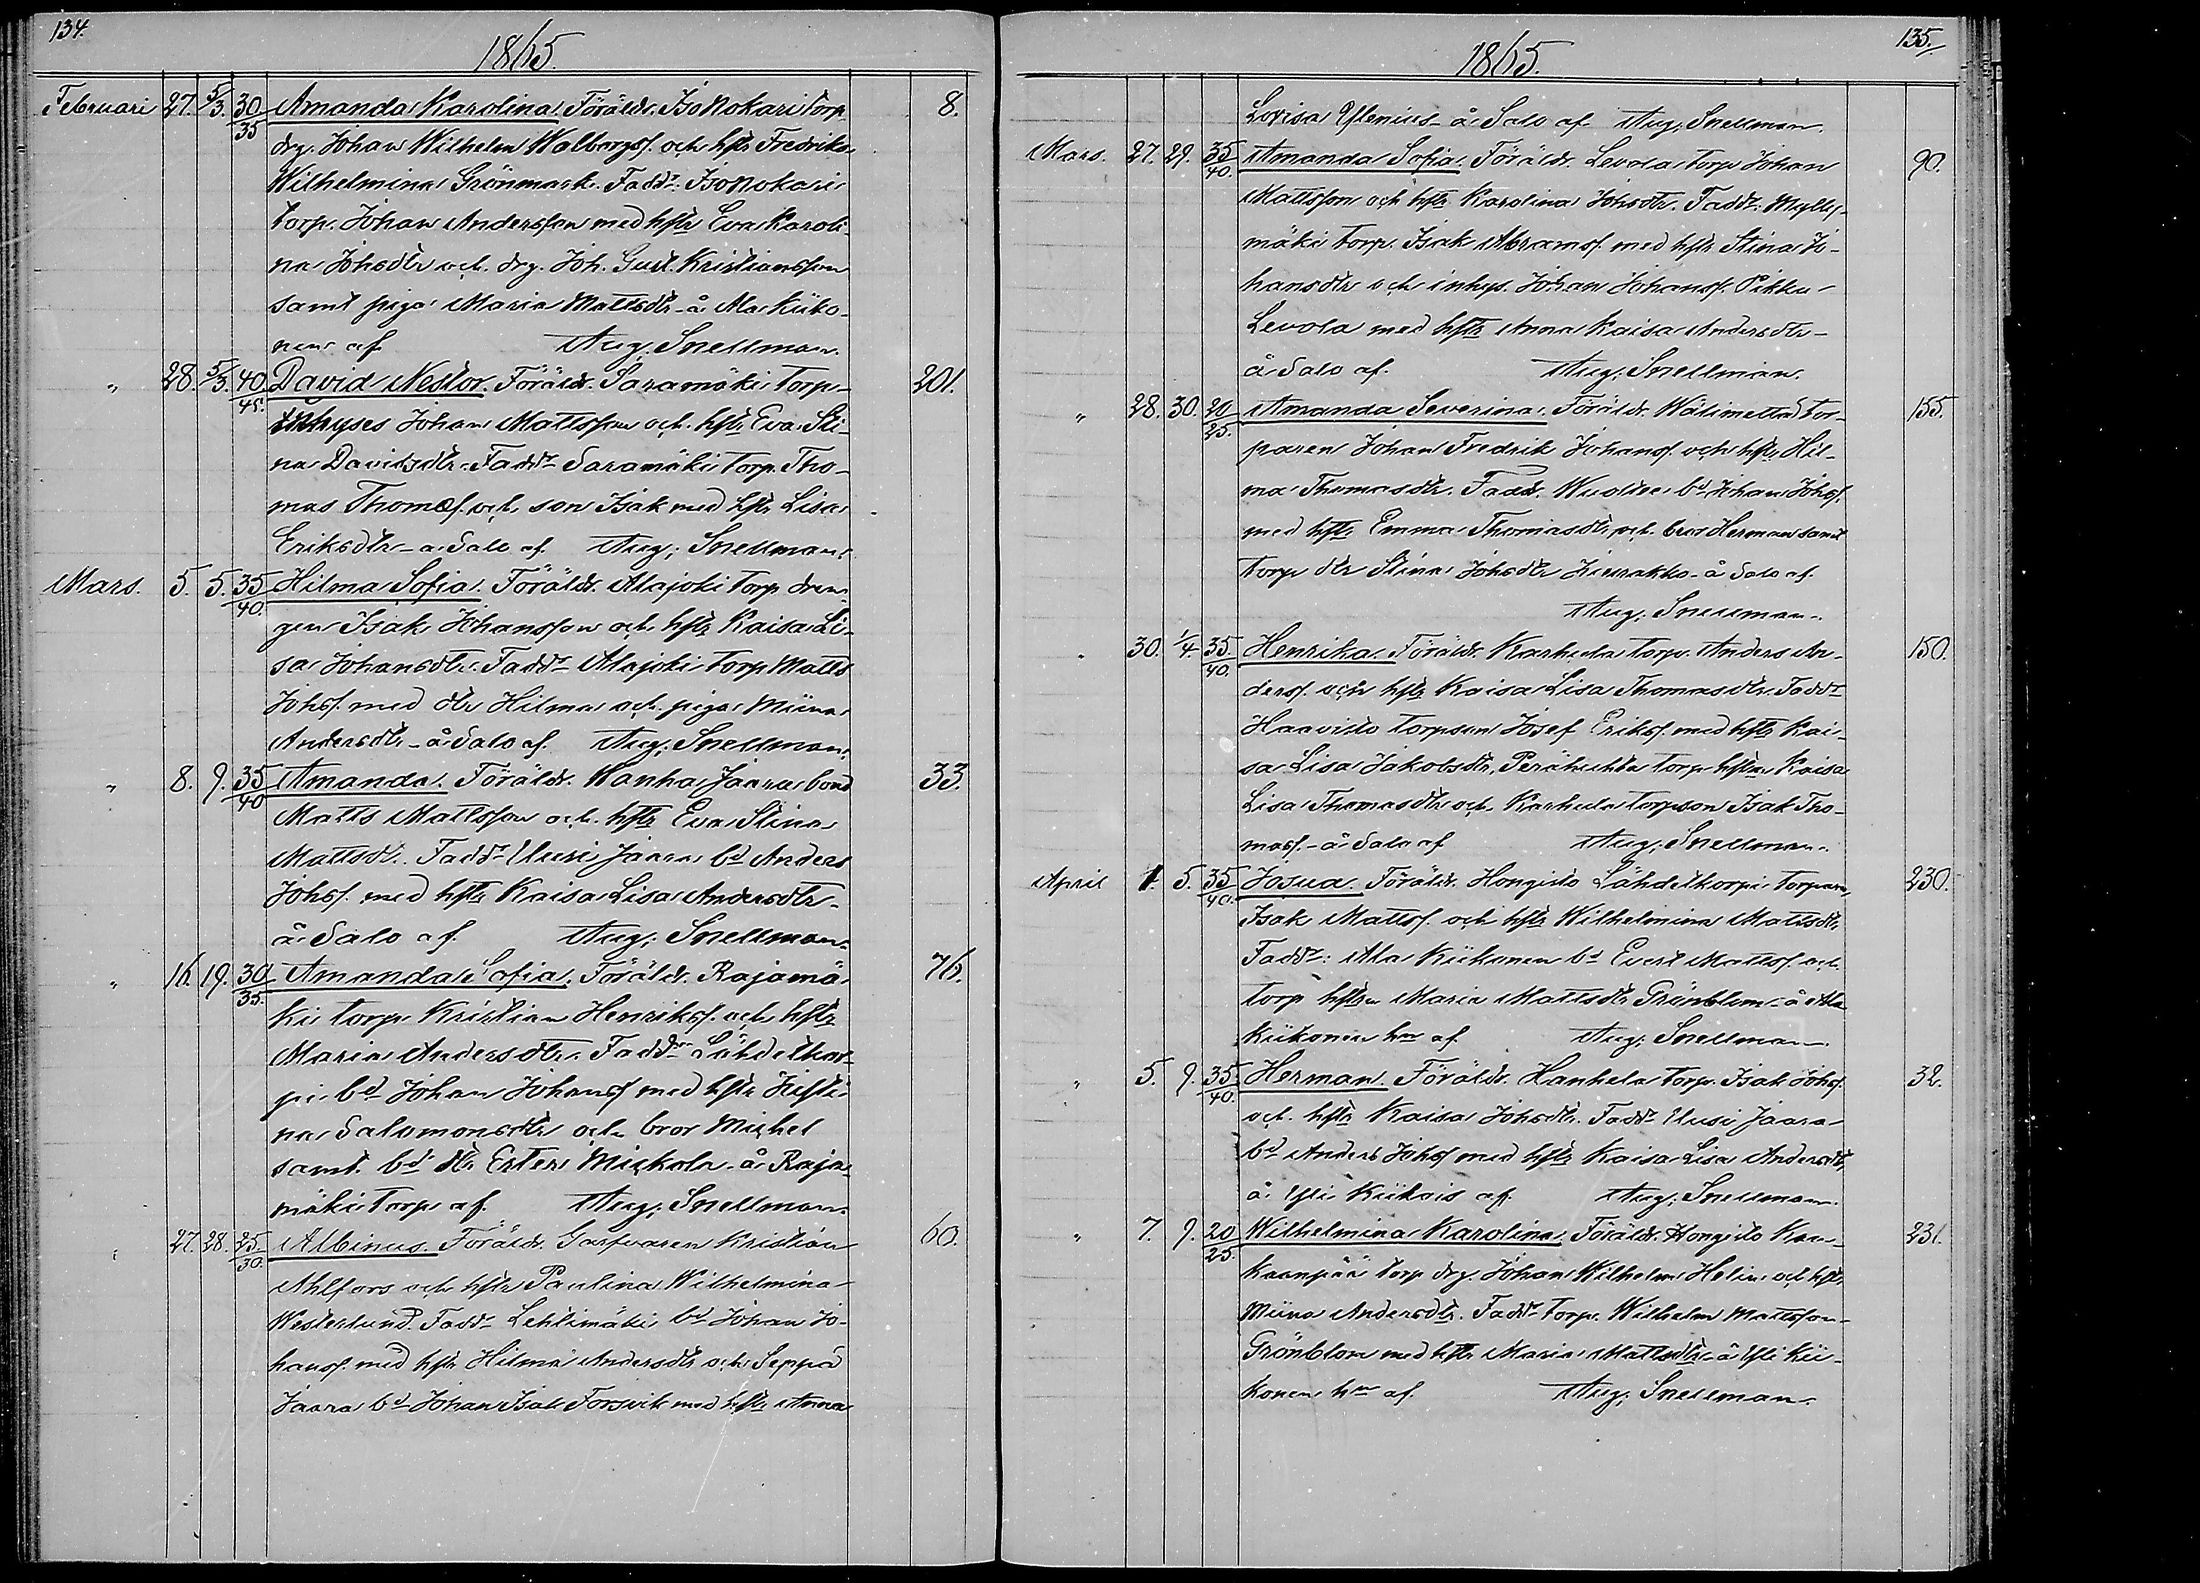 134.
1865.
Februari 27. 5/3. 30/35 Amanda Karolina. Föräldr. Iso Nokari torp 8.
drg. Johan Wilhelm Walborgsf. och hstr Fredrika
Wilhelmina Grönmark. Faddr: Iso Nokari
torp. Johan Andersson med hstr Eva Karoli-
na Johsdtr och drg. Joh. Gust. Kristiansson
samt piga Maria Mattsdtr - å Ala Kiiko-
nen af Aug. Snellman.
" 28. 5/3. 40/45. David Nestor. Föräldr. Saramäki Torp- 201.
inhyses Johan Mattsson och hstr Eva Sti-
na Davidsdtr. Faddr Saramäki torp. Tho-
mas Thomæs. och son Isak med hstr Lisa
Eriksdtr - å Salo af Aug. Snellman.
Mars. 5. 5. 35/40. Hilma Sofia. Föräldr. Alajoki torp dren-
gen Isak Johansson och hstr Kaisa Li-
sa Johansdtr. Faddr Alajoki torp Matts
Johsf. med dtr Hilma och piga Miina
Andersdtr - å Salo af Aug. Snellman.
" 8. 9. 35/40 Amanda. Föräldr. Wanha Jaara bond 33.
Matts Mattsson och hstr Eva Stina
Mattsdr. Faddr Uusi Jaara bd Anders
Johsf. med hstr Kaisa Lisa Andersdtr -
å Salo af Aug. Snellman.
" 16. 19. 30/35. Amanda Sofia. Föräldr. Rajamä- 76.
ki torp. Kristian Henriksf. och hstr
Maria Andersdtr. Faddr Lähdekor-
pi bd Johan Johansf med hstr Justi-
na Salomonsdtr och bror Michel
samt bd dtr Ester Mickola - å Raja-
mäki torp af Aug. Snellman.
27. 28. 25/30. Albinus. Föräldr. Garfvaren Kristian 60.
Ahlfors och hstr Paulina Wilhelmina
Westerlund. Faddr Lehtimäki bd Johan Jo-
hansf. med hstr Hilma Andersdtr och Seppä
Jaara bd Johan Isak Forsvik med hstr Anna
135.
1865.
Lovisa Ylenius - å Salo af Aug. Snellman.
Mars. 27. 29. 35/40. Amanda Sofia. Föräldr. Levola torp Johan 90.
Mattsson och hstr Karolina Johsdtr. Faddr: Mylly-
mäki torp. Isak Abramsf. med hstr Stina Jo-
hansdtr och inhys. Johan Johansf. Pikku
Levola med hstr Anna Kaisa Andersdtr -
å Salo af. Aug. Snellman.
" 28. 30. 20/25. Amanda Severina. Föräldr. Wälimetta tor- 155.
paren Johan Fredrik Johansf. och hstr Hil-
ma Thomasdtr. Faddr. bd Johan Johsf.
med hstr Emma Thomasdtr och bror Herman samt
torp dtr Stina Johsdtr - å Salo af.
Aug. Snellman.
" 30. 1/4. 35/40. Henrika. Föräldr. Karhula torp. Anders An- 150.
dersf. och hstr Kaisa Lisa Thomasdtr. Faddr
Haavisto torpson Josef Eriksf. med hstr Kai-
sa Lisa Jakobsdtr, Perähuhta torp hstru Kaisa
Lisa Thomasdtr och Karhula torpson Isak Tho-
masf. - å Salo af Aug. Snellman.
April 1. 5. 35/40. Josua. Föräldr. Hongisto Lähdekorpi torparn 230.
Isak Mattsf. och hstr Wilhelmina Mattsdtr
Faddr: Ala Kiikonen bd Evert Mattsf. och
torp hstru Maria Mattsdtr Grönblom - å Ala
Kiikonen hm af Aug. Snellman.
" 5. 9. 35/40. Herman. Föräldr. Hanhela torp. Isak Johsf. 32.
och hstr Kaisa Johsdtr. Faddr Uusi Jaara
bd Anders Johsf med hstr Kaisa Lisa Andersdtr
å Yli Kiikois af Aug. Snellman.
" 7. 9. 20/25 Wilhelmina Karolina. Föräldr. Hongisto Kan- 231.
kaanpää torp drg. Johan Wilhelm Helin och hstr
Miina Andersdtr. Faddr torp. Wilhelm Mattsson
Grönblom med hstr Maria Mattsdtr - å Yli Kii-
konen hm af. Aug. Snellman.